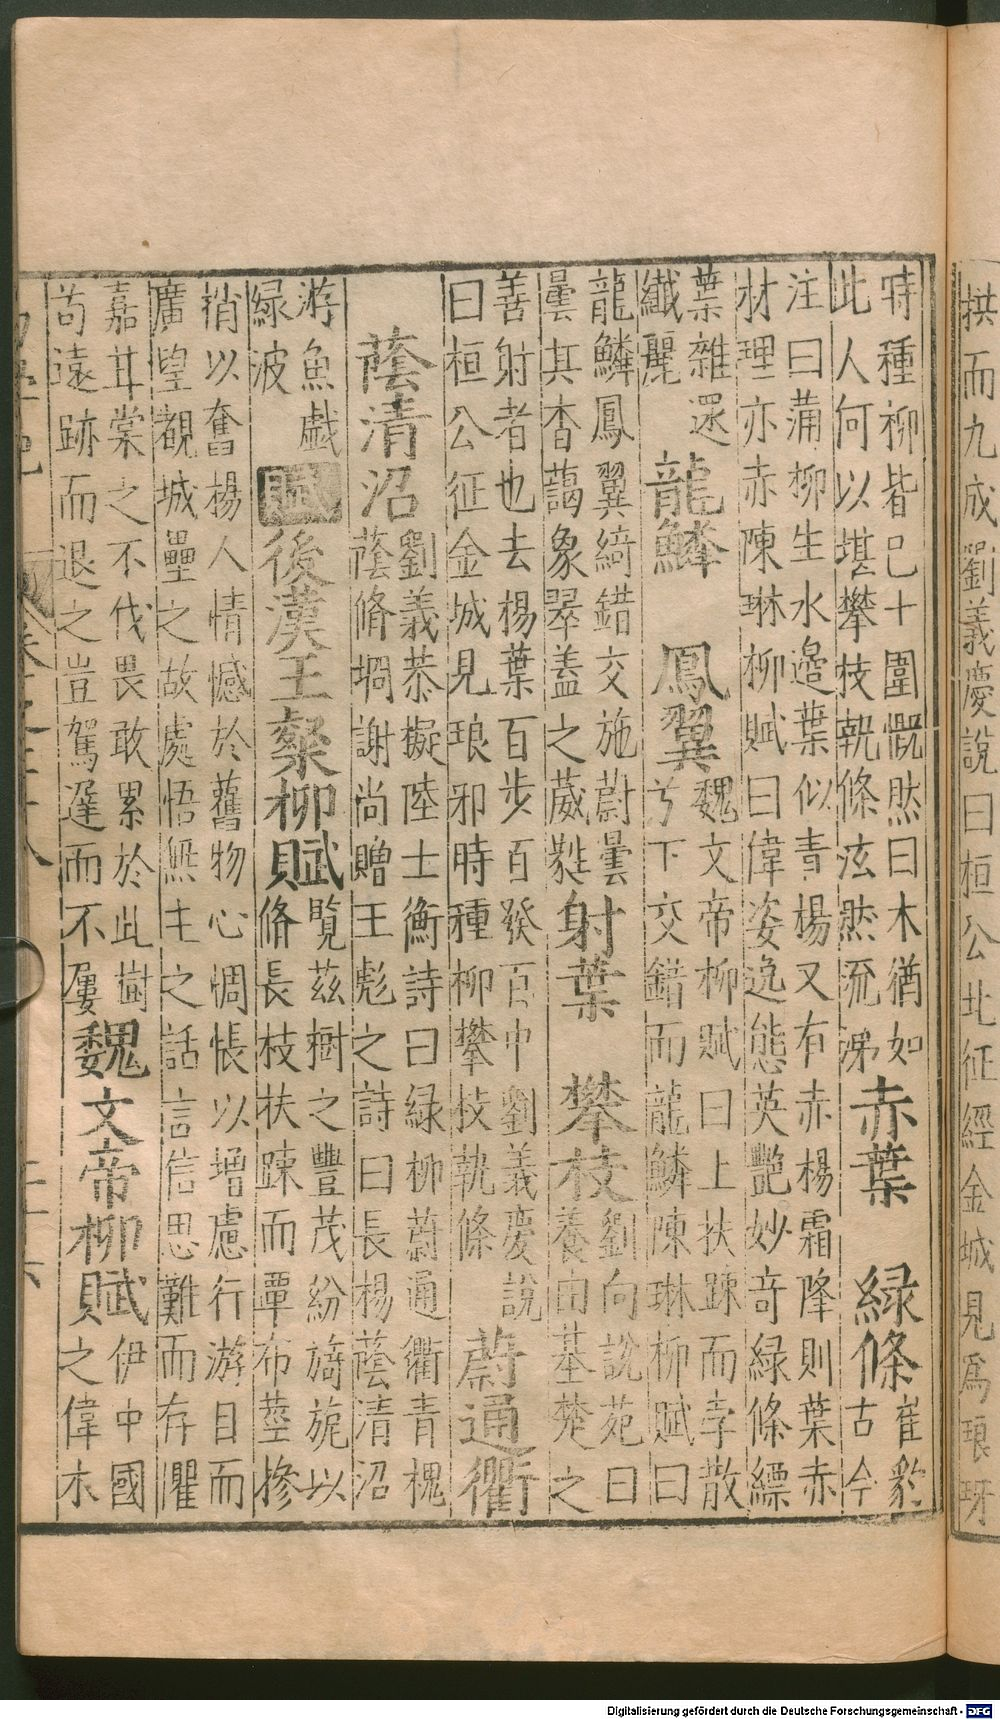 拱而九成劉義慶說曰桓公北征經金城見爲琅玡
時種柳皆已十圍慨然曰木猶如
此人何以堪攀枝執條泫然流涕
赤葉
緑條
崔豹
古今
注曰蒲柳生水邉葉似青楊又有赤楊霜降則葉赤
材理亦赤陳琳柳賦曰偉姿逸態英艷妙竒緑條縹
葉雜還
纎麗
龍鱗
鳳翼
魏文帝柳賦曰上扶踈而孛散
兮下交錯而龍鱗陳琳柳賦曰
龍鱗鳳翼綺錯交施蔚曇
曇其杳藹象翠蓋之葳蕤
射葉
攀枝
劉向說苑曰
養由基楚之
善射者也去楊葉百步百發百中劉義慶說
曰桓公征金城見琅邪時種柳攀枝執條
蔚通衢
蔭清沼
劉義恭擬陸士衡詩曰緑柳蔚通衢青槐
蔭脩堈謝尚贈王彪之詩曰長楊蔭清沼
游魚戯
緑波
賦
後漢王粲柳賦
覽茲樹之豐茂紛旖旎以
脩長枝扶踈而覃布莖摻
稍以奮楊人情憾於舊物心惆悵以増慮行游目而
廣望覩城壘之故處悟無主之話言信思難而存懼
嘉甘棠之不伐畏敢累於此樹
苟遠跡而退之豈駕遲而不屢
魏文帝柳賦
伊中國
之偉木
Digitalisierung gefördert durch die Deutsche Forschungsgemeinschaft - DFG